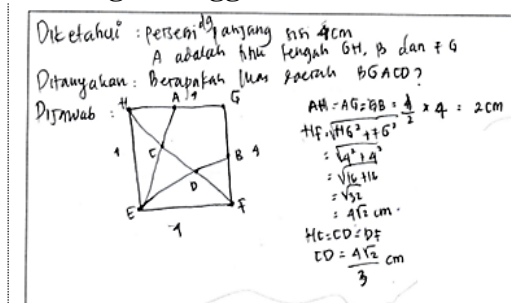 Diketahui : persegi dg panjang sisi 4cm
A adalah titik tengah GH, B dan FG
Ditanyakan : Berapakah luas daerah BGACD?
Dijawab :
H A 4 G
4 C B 4
D
E F
4
AH = AG = GB = 1/2 × 4 = 2 cm
HF = √HG² + FG²
= √4² + 4²
= √16 + 16
= √32
= 4√2 cm.
HC = CD = DF
CD = 4√2/3 cm